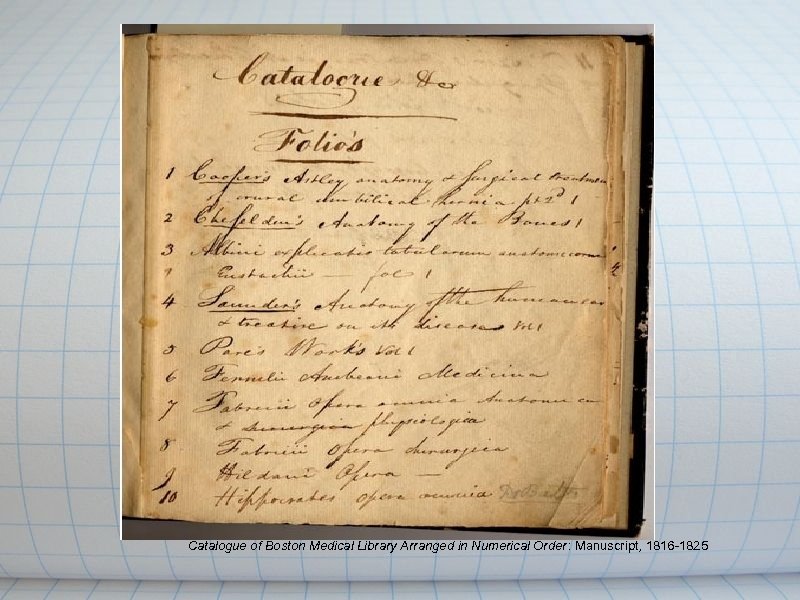 Catalogue &c
Folio's
1 Cooper's Astley anatomy & Surgical treatment
of crural umbilical hernia pt 2d 1
2 Cheselden's Anatomy of the Bones 1
3 Albini explicatio tabularum anatomicarum
Eustachii — fol 1
4 Saunder's Anatomy of the human ear
& treatise on its diseases Vol 1
5 Pare's Work's Vol 1
6 Fernelii Medicina
7 Fabricii Opera omnia Anatomica
& physiologica
8 Fabricii Opera chirurgica
9 Hildani Opera —
10 Hippocrates opera omnia
Catalogue of Boston Medical Library Arranged in Numerical Order: Manuscript, 1816-1825